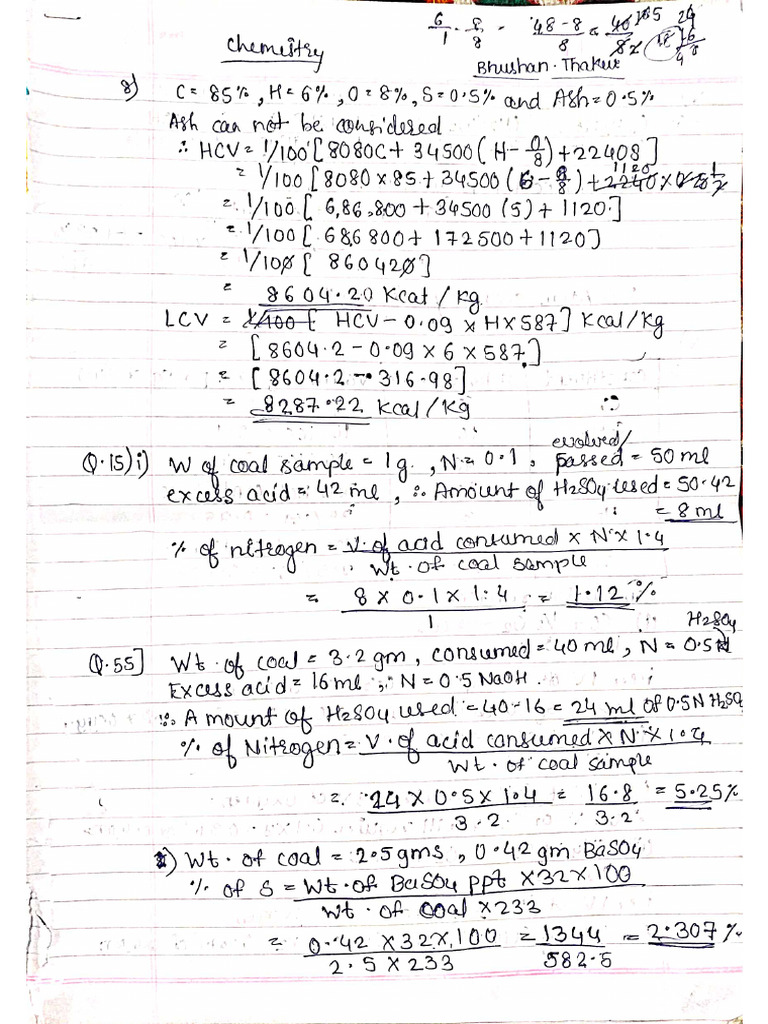 6/1 - 8/8 = 48-8/8 = 40/8
Chemistry
Bhushan. Thakur
8) C = 85%, H = 6%, O = 8%, S = 0.5% and Ash = 0.5%
Ash can not be considered
∴ HCV = 1/100 [8080C + 34500 (H - O/8) + 2240S]
= 1/100 [8080 × 85 + 34500 (6 - 8/8) + 2240 × 0.5 1120]
= 1/100 [6,86,800 + 34500 (5) + 1120]
= 1/100 [686800 + 172500 + 1120]
= 1/100 [860420]
= 8604.20 Kcal/Kg
LCV = 1/100 [HCV - 0.09 × H × 587] Kcal/Kg
= [8604.2 - 0.09 × 6 × 587]
= [8604.2 - 316.98]
= 8287.22 Kcal/Kg
Q.15) i) W of coal sample = 1g., N = 0.1, evolved/passed = 50 ml
excess acid = 42 ml, ∴ Amount of H2SO4 used = 50-42
= 8 ml
% of nitrogen = V. of acid consumed × N × 1.4
Wt. of coal sample
= 8 × 0.1 × 1.4 = 1.12 %
1
Q.55] Wt. of coal = 3.2 gm, consumed = 40 ml, N = 0.5 H2SO4
Excess acid = 16 ml, N = 0.5 NaOH.
∴ Amount of H2SO4 used = 40-16 = 24 ml of 0.5N H2SO4
% of Nitrogen = V. of acid consumed × N × 1.4
Wt. of coal sample
= 24 × 0.5 × 1.4 = 16.8 = 5.25%
3.2 3.2
Wt. of coal = 2.5 gms, 0.42 gm BaSO4
% of S = Wt. of BaSO4 ppt × 32 × 100
Wt. of coal × 233
= 0.42 × 32 × 100 = 1344 = 2.307 %
2.5 × 233 582.5